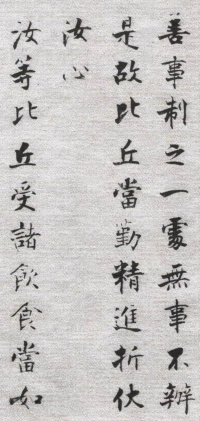 善事制之一處無事不辦
是故比丘當勤精進折伏
汝心
汝等比丘受諸飲食當如